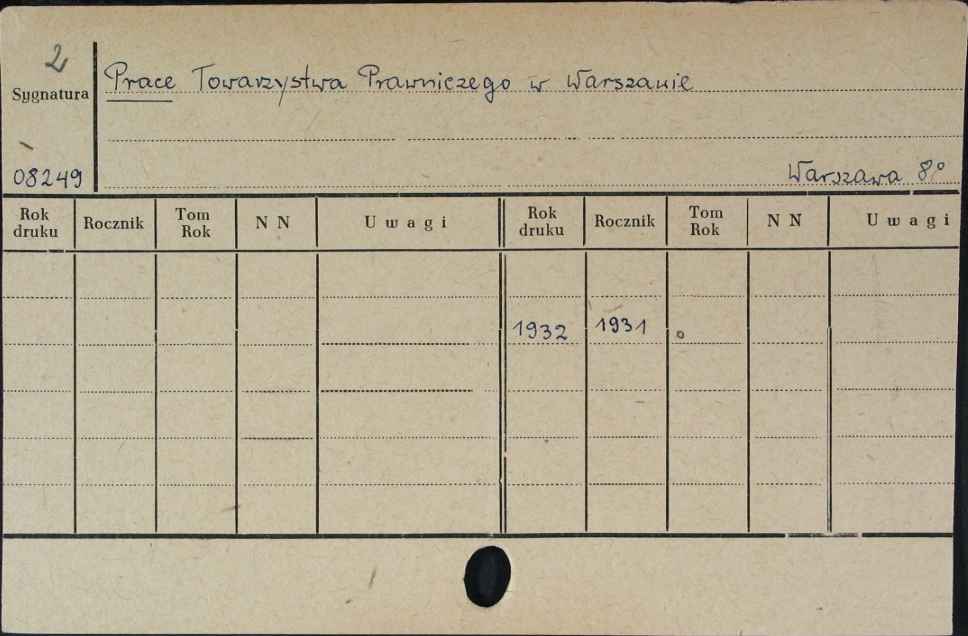 2
Prace Towarzystwa Prawniczego w Warszawie
Sygnatura
08249
Warszawa 8°
Rok druku Rocznik Tom Rok N N Uwagi Rok druku Rocznik Tom Rok N N Uwagi
1932 1931